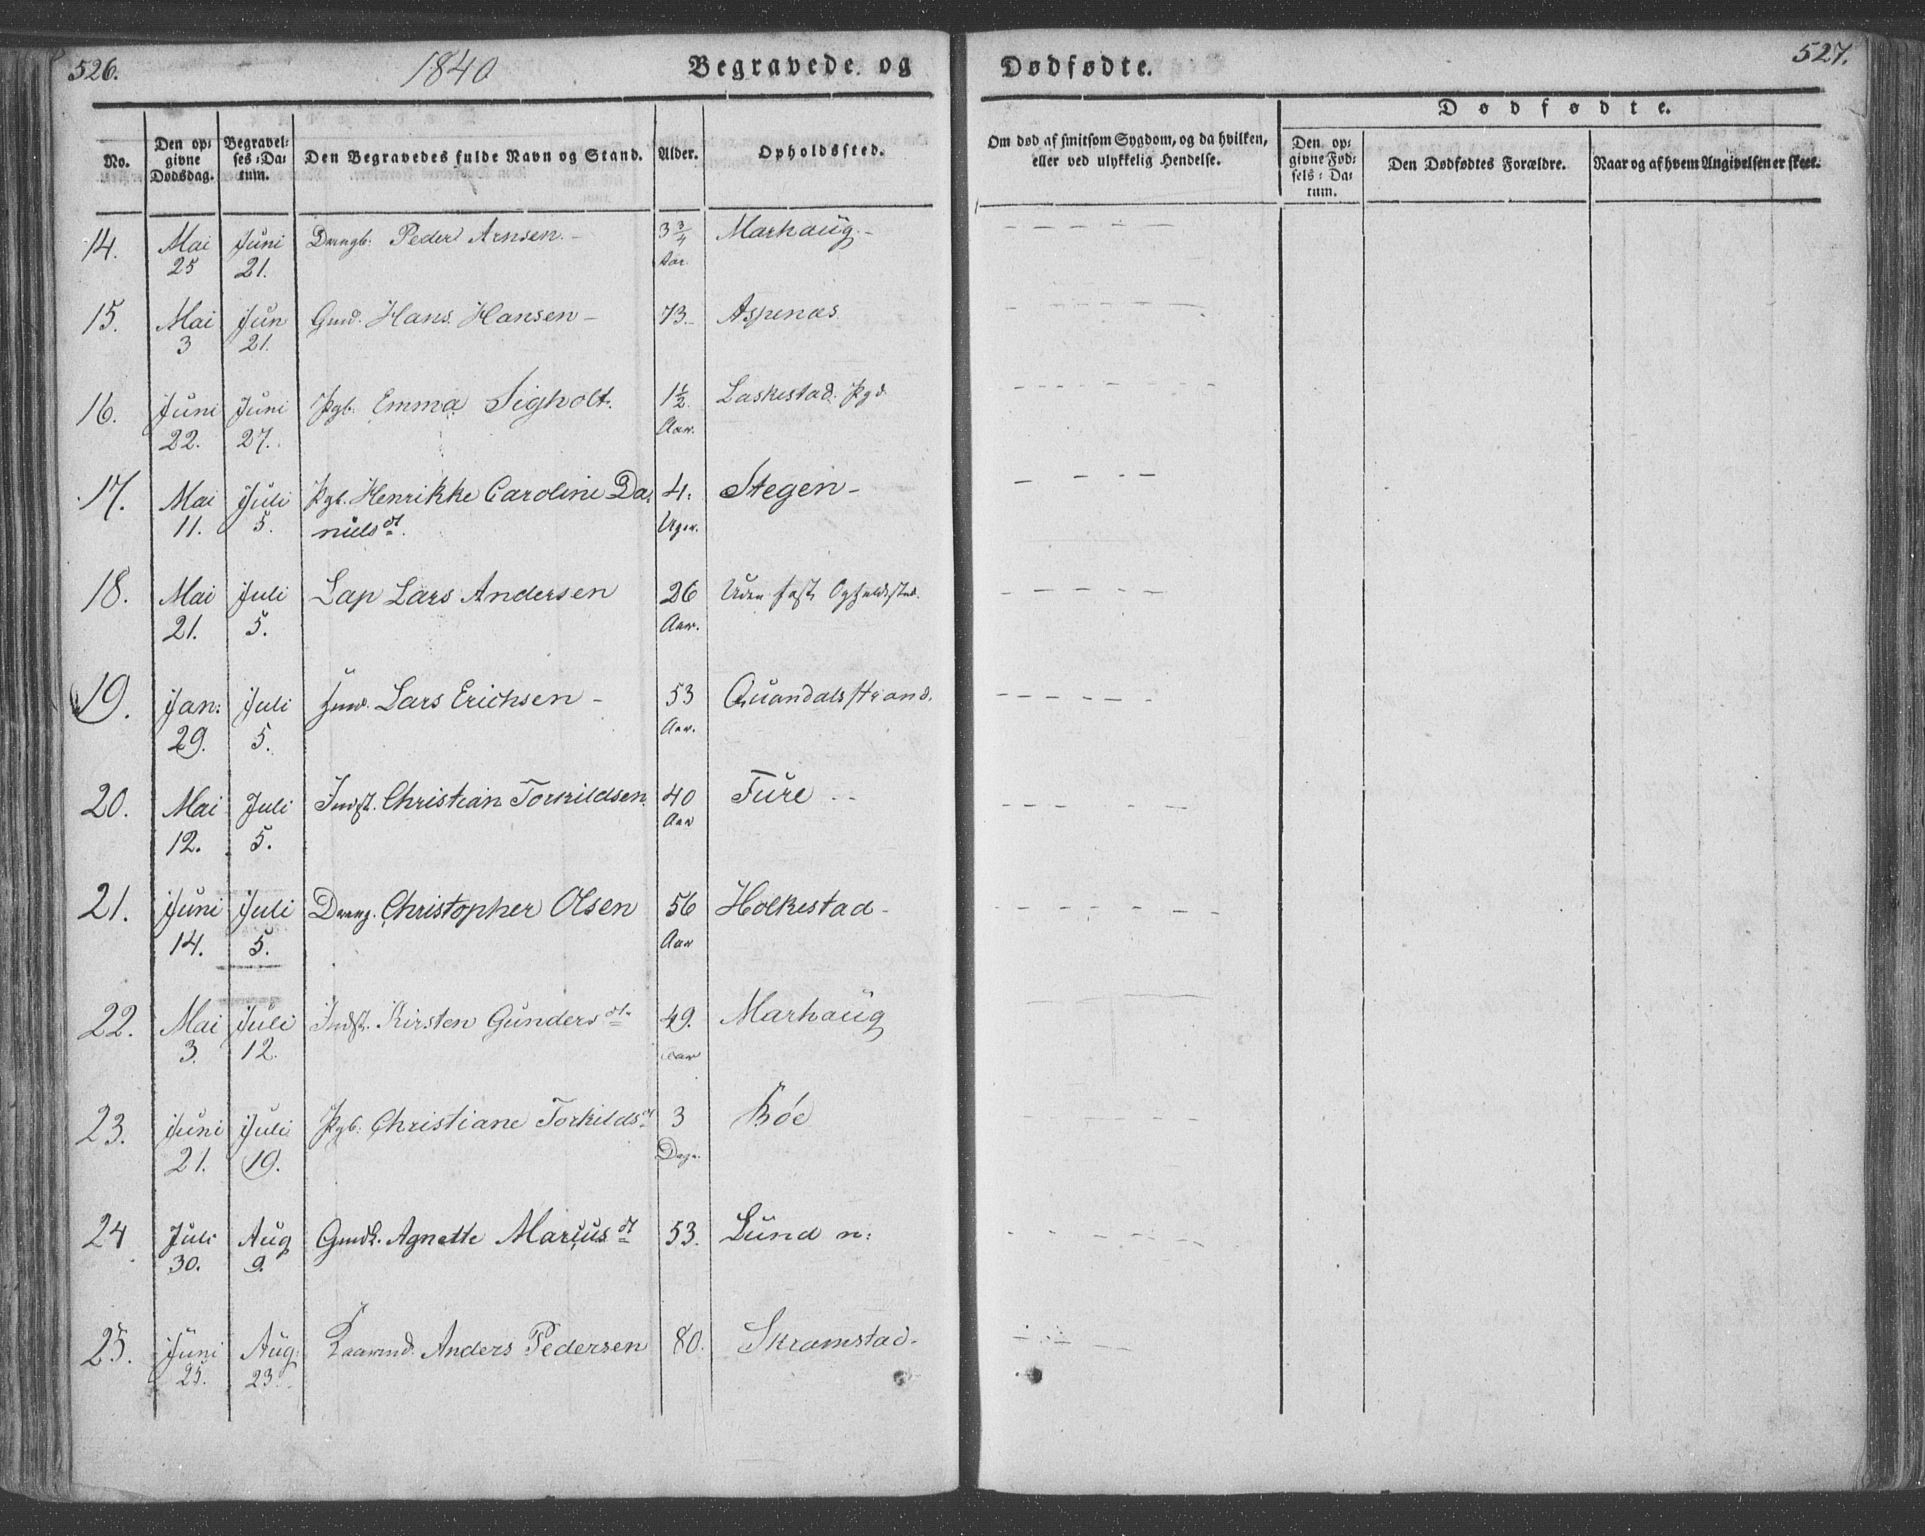 526.
1840
Begravede og
Dødfødte.
527.
No.
Den op-
givne
Dødsdag.
Begravel-
ses-Da-
tum.
Den Begravedes fulde Navn og Stand.
Alder.
Opholdssted.
Om død af smitsom Sygdom, og da hvilken,
eller ved ulykkelig Hendelse.
Dødfødte.
Den op-
givne Fød-
sels-Da-
tum.
Den Dødfødtes Forældre.
Naar og af hvem Angivelsen er skeet.
14. Mai 25 Juni 21. Drengb. Peder Arnsen. - 3 3/4 Aar Marhaug. -
15. Mai 3 Jun 21. Gmd. Hans Hansen - 73. Aspenæs
16. Juni 22. Juni 27. Pgb. Emma Sigholt. 1 1/2 Aar. Laskestad. Pgd
17. Mai 11. Juli 5. Pgb. Henrikke Caroline Da-
nielsdt. 4. Uger. Stegen -
18. Mai 21. Juli 5. Lap Lars Andersen 26 Aar. Uden fast Opholdsted.
19. Jan: 29. Juli 5. Lars Erichsen - 53 Aar. Quandalsstrand.
20. Mai 12. Juli 5. Indst. Christian Torkildsen 40 Aar Fure --
21. Juni 14. Juli 5. Dreng. Christopher Olsen 56 Aar Holkestad -
22. Mai 3. Juli 12. Indst. Kirsten Gundersdt. 49. Aar Marhaug
23. Juni 21. Juli 19. Pgb: Christiane Torkildsdt 3 Dage. Bóe
24 Juli 30. Aug 9. Gmdk. Agnette Mariusdt 53. Lund n:
25. Juni 25. Aug: 23. Kaarmd. Anders Pedersen 80. Skramstad -